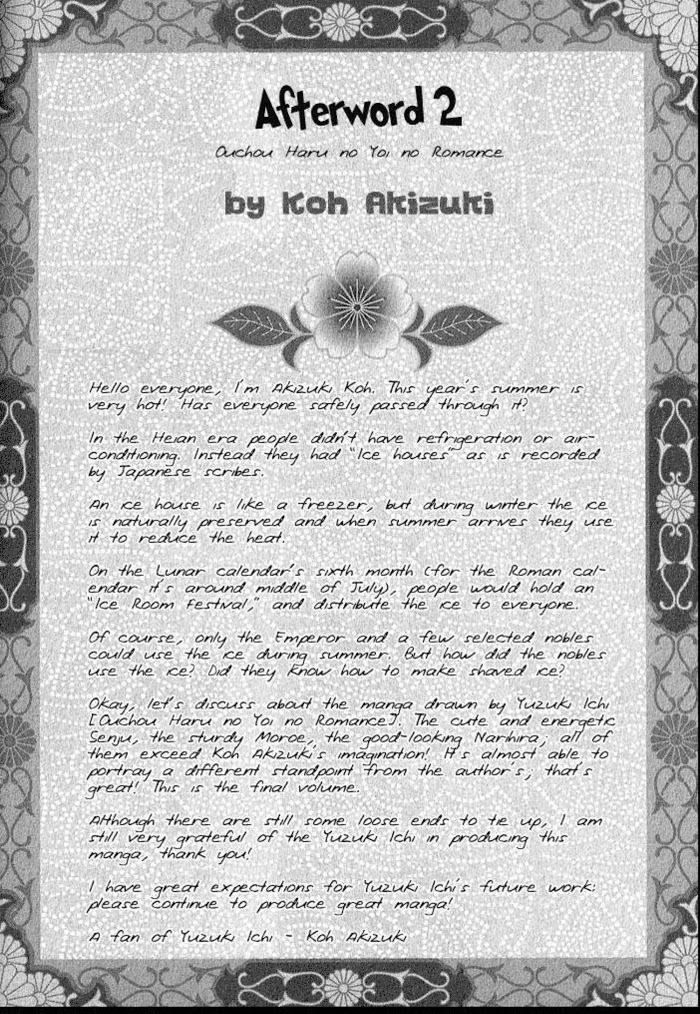 Afterword 2
Ouchou Haru no Yoi no Romance
by Koh Akizuki
Hello everyone, I'm Akizuki Koh. This year's summer is
very hot! Has everyone safely passed through it?
In the Heian era people didn't have refrigeration or air-
conditioning. Instead they had "Ice houses" as is recorded
by Japanese scribes.
An ice house is like a freezer, but during winter the ice
is naturally preserved and when summer arrives they use
it to reduce the heat.
On the Lunar calendar's sixth month (for the Roman cal-
endar it's around middle of July), people would hold an
"Ice Room Festival," and distribute the ice to everyone.
Of course, only the Emperor and a few selected nobles
could use the ice during summer. But how did the nobles
use the ice? Did they know how to make shaved ice?
Okay, let's discuss about the manga drawn by Yuzuki Ichi
[Ouchou Haru no Yoi no Romance]. The cute and energetic
Senju, the sturdy Moroe, the good-looking Narihira; all of
them exceed Koh Akizuki's imagination! It's almost able to
portray a different standpoint from the author's, that's
great! This is the final volume.
Although there are still some loose ends to tie up, I am
still very grateful of the Yuzuki Ichi in producing this
manga, thank you!
I have great expectations for Yuzuki Ichi's future work;
please continue to produce great manga!
A fan of Yuzuki Ichi - Koh Akizuki